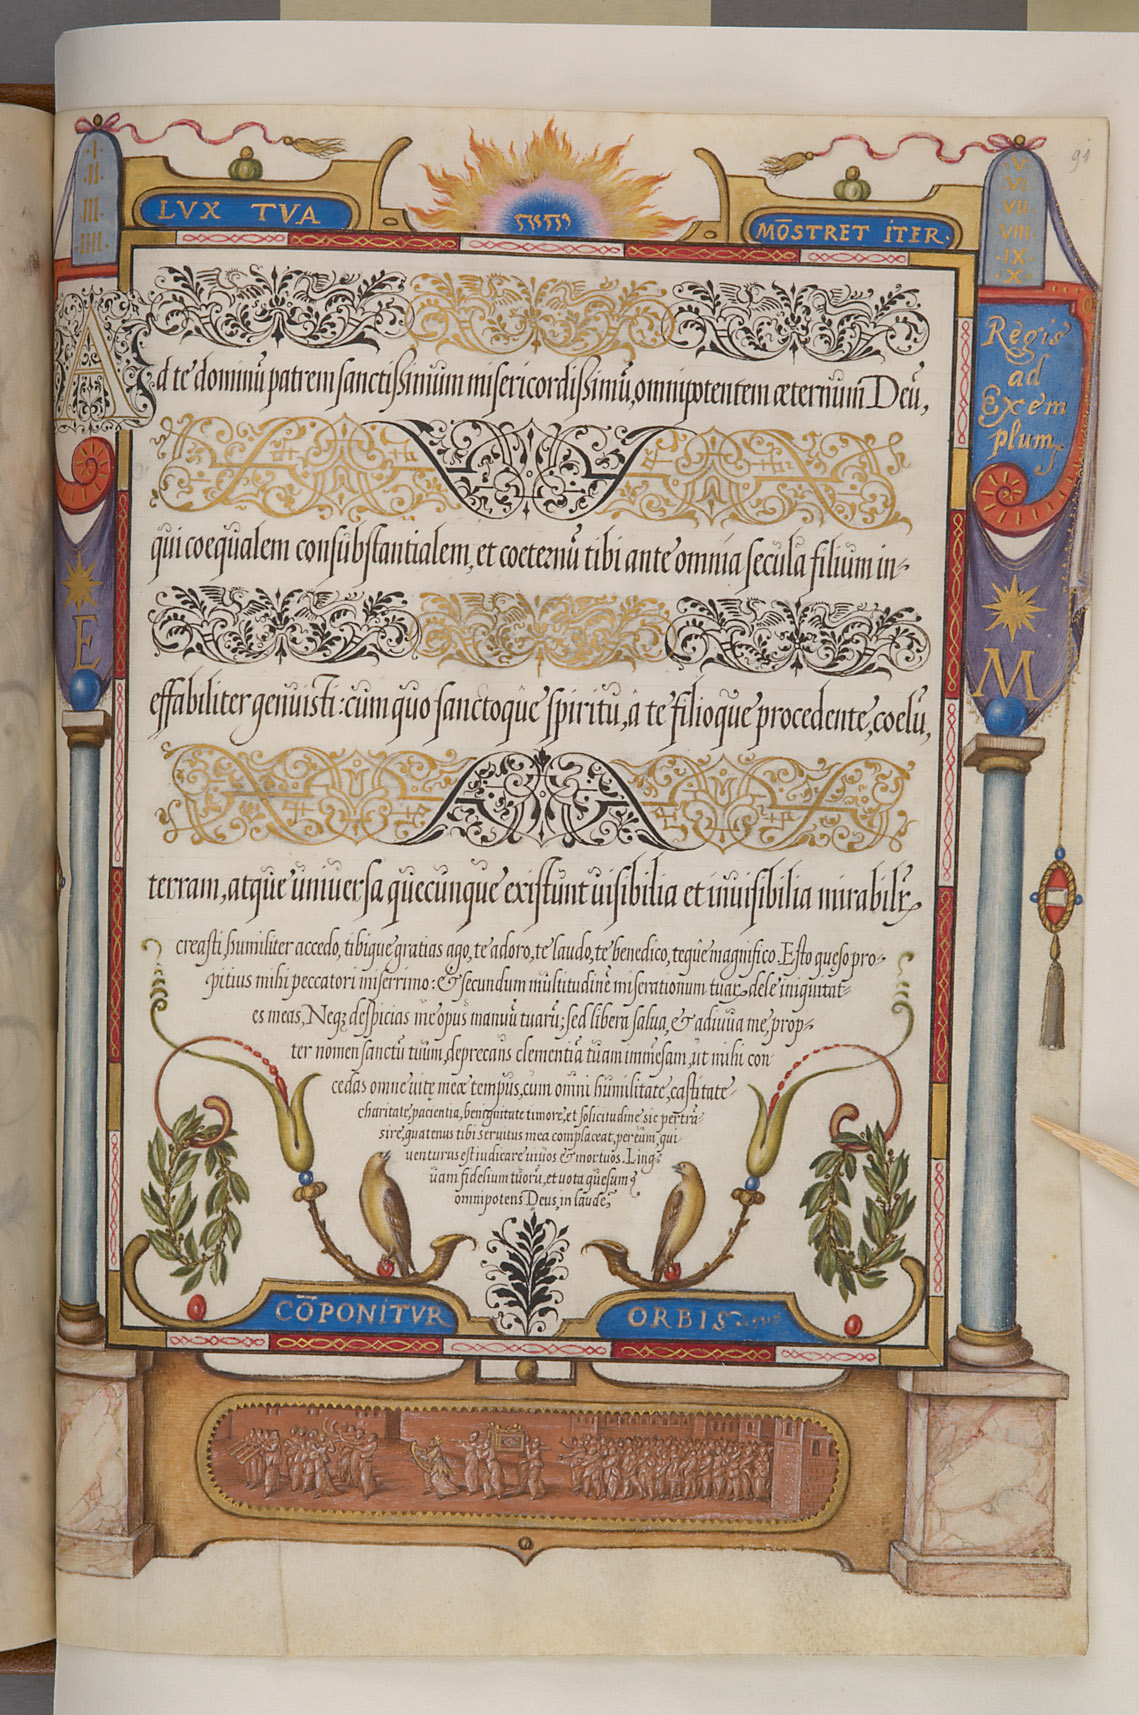 91
I
II
III
IIII
LVX TVA
MŌSTRET ITER.
V
VI
VII
VIII
IX
X
Regis
ad
Exem
plum
E
M
Ad te dominū patrem sanctissimum misericordissimū, omnipotentem æternum Deū,
qui coequalem consubstantialem, et coeternū tibi ante omnia secula filium in-
effabiliter genuisti: cum quo sanctoque spiritu, a te filioque procedente, coelū,
terram, atque uniuersa quecunque existunt uisibilia et inuisibilia mirabilr̄
creasti, humiliter accedo, tibique gratias ago, te adoro, te laudo, te benedico, teque magnifico. Esto queso pro-
pitius mihi peccatori miserrimo: & secundum multitudinē miserationum tuaꝝ dele iniquitat-
es meas, Neqꝫ despicias me opus manuū tuarū; sed libera salua, & adiuua me, prop-
ter nomen sanctū tuum, deprecans clementiā tuam immēsam, ut mihi con
cedas omne uite meæ tempus, cum omni humilitate, castitate-
charitate, pacientia, benignitute timore, et solicitudine sic pertrā-
sire, quatenus tibi seruitus mea complaceat, per eum, qui
uenturus est iudicare uiuos & mortuos. Ling-
uam fidelium tuorū, et uota quesumꝰ
omnipotens Deus, in laude,
CŌPONITVR
ORBIS